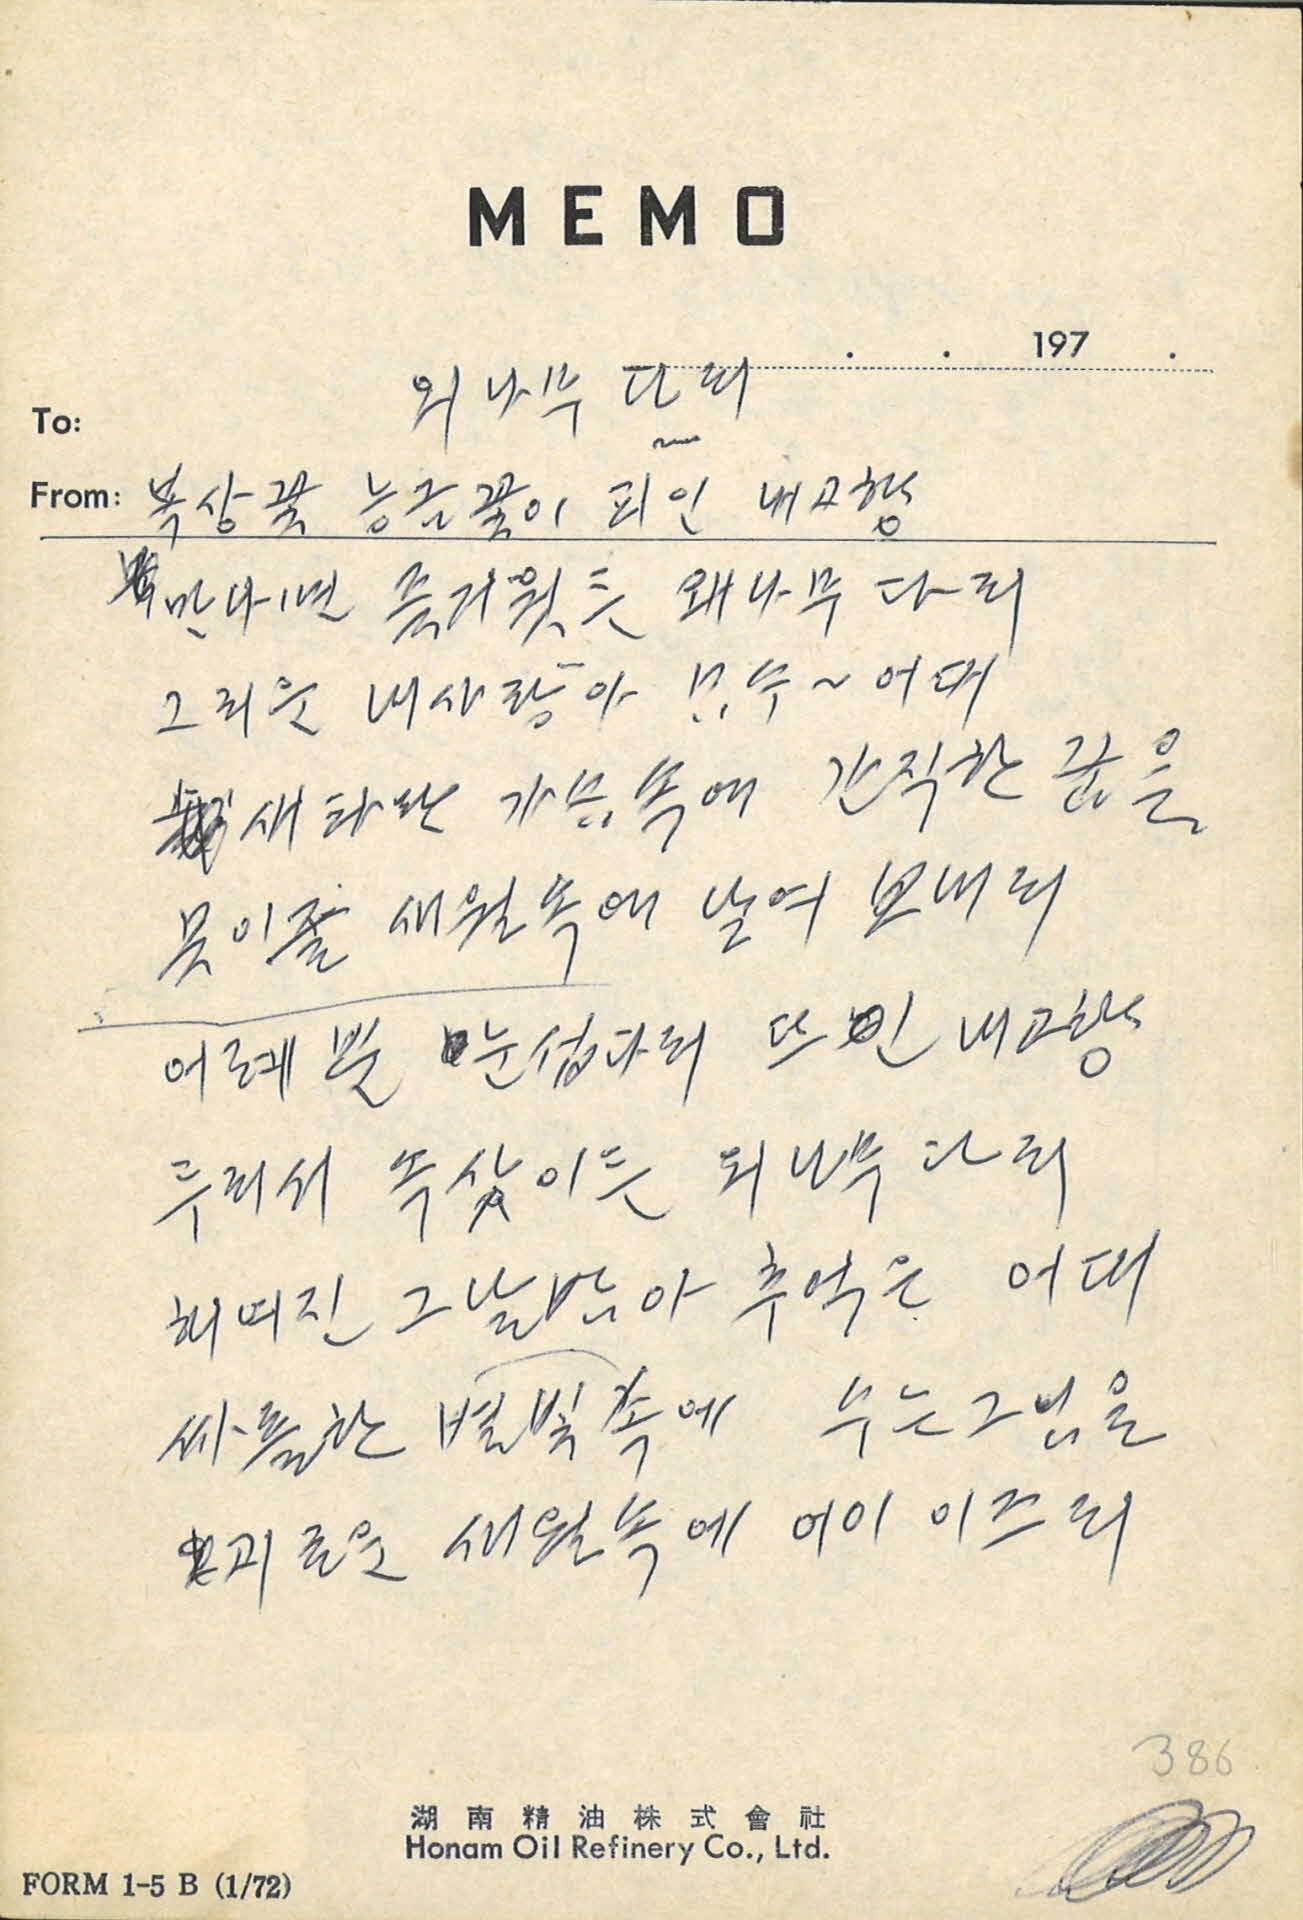 MEMO
197 . . .
외나무 다리
To:
From: 복상꽃 능금꽃이 피인 내고향
만나면 즐거웟든 왜나무다리
그리운 내사랑아 모두~어대
새파란 가슴속에 간직한 꿈을
못이즐 새월속에 날여 보내리
어레뿐 눈섭다리 뜨인 내고향
두리서 속삿이든 외나무다리
헤여진 그날밤아 추억은 어대
싸늘한 별빛속에 수는그밤을
괴로운 새월속에 어이 이즈리
386
湖南精油株式會社
Honam Oil Refinery Co., Ltd.
FORM 1-5 B (1/72)